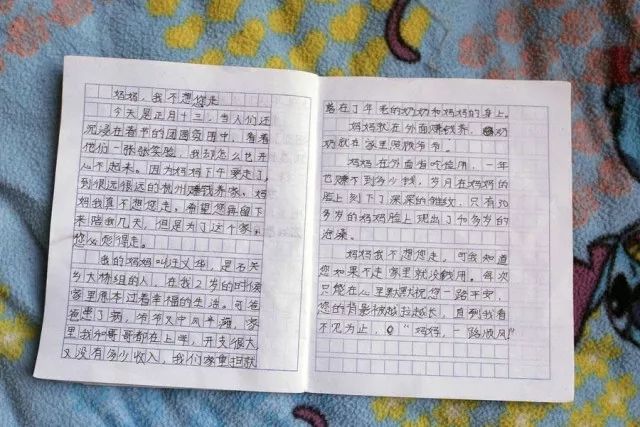 妈妈，我不想您走
今天是正月十三，当人们还
沉浸在春节的团圆氛围中，看着
他们一张张笑脸，我却怎么也开
心不起来。因为妈妈下午要走了，
到很远很远的杭州赚钱养家。妈
妈我真不想您走。希望您再留下
来陪我几天，但是为了这个家，
您必须得走。
我的妈妈叫汪义华，是石关
乡大林组的人，在我2岁的时候
家里原本过着幸福的生活。可爸
爸患了病，爷爷又中风半瘫，家
里我和哥哥都在上学，开支很大，
又没有多少收入，我们家重担就
落在了年老的奶奶和妈妈的身上。
妈妈就在外面赚钱养，奶
奶就在家里照顾爷爷。
妈妈在外省吃俭用，一年
也赚不到多少钱，岁月在妈妈的
脸上刻下了深深的皱纹，只有30
多岁的妈妈脸上现出了40多岁的
沧桑。
妈妈我不想您走，可我知道
您如果不走家里就没钱用。每次
只能在心里默默祝您一路平安，
您的背影被越拉越长，直到我看
不见为止，“妈妈，一路顺风！”